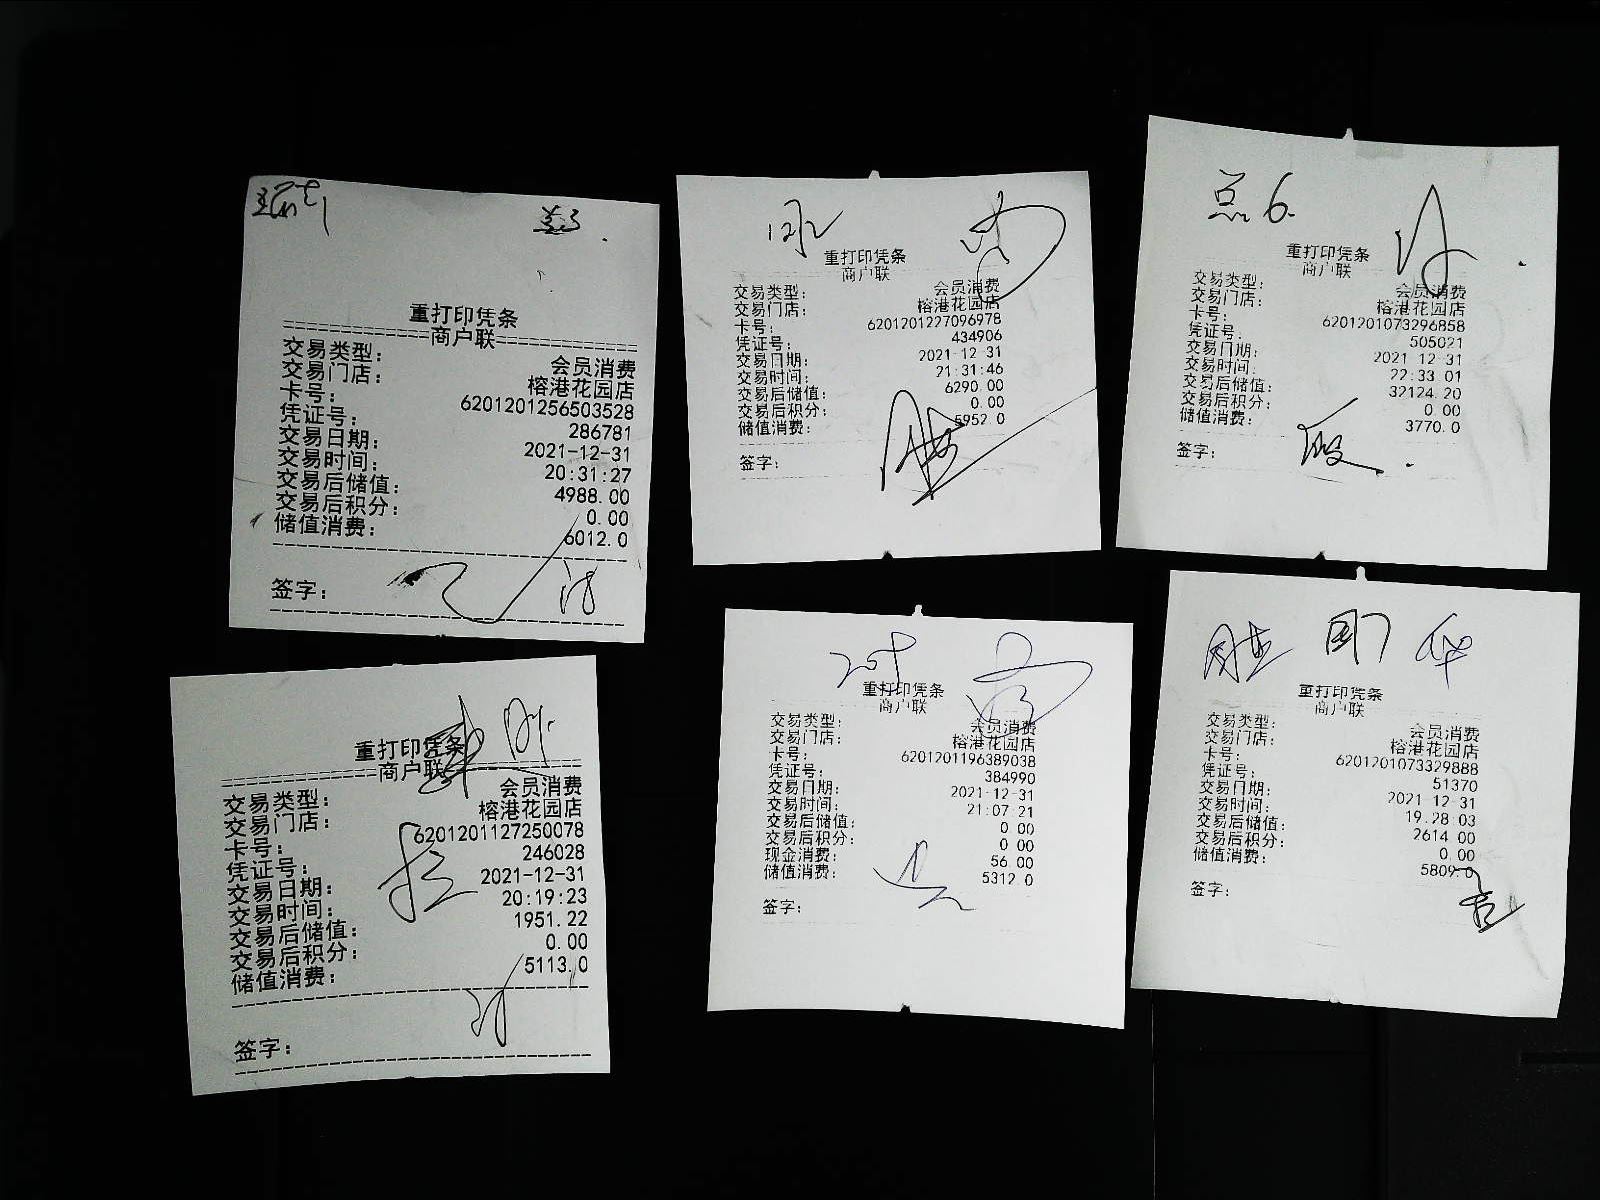 重打印凭条
商户联
交易类型： 会员消费
交易门店： 榕港花园店
卡号： 6201201256503528
凭证号： 286781
交易日期： 2021-12-31
交易时间： 20:31:27
交易后储值： 4988.00
交易后积分： 0.00
储值消费： 6012.0
签字：
重打印凭条
商户联
交易类型： 会员消费
交易门店： 榕港花园店
卡号： 6201201227096978
凭证号： 434906
交易日期： 2021-12-31
交易时间： 21:31:46
交易后储值： 6290.00
交易后积分： 0.00
储值消费： 5952.0
签字：
总6.
重打印凭条
商户联
交易类型： 会员消费
交易门店： 榕港花园店
卡号： 6201201073296858
凭证号： 505021
交易日期： 2021-12-31
交易时间： 22:33:01
交易后储值： 32124.20
交易后积分： 0.00
储值消费： 3770.0
签字：
重打印凭条
商户联
交易类型： 会员消费
交易门店： 榕港花园店
卡号： 6201201127250078
凭证号： 246028
交易日期： 2021-12-31
交易时间： 20:19:23
交易后储值： 1951.22
交易后积分： 0.00
储值消费： 5113.0
签字：
重打印凭条
商户联
交易类型： 会员消费
交易门店： 榕港花园店
卡号： 6201201196389038
凭证号： 384990
交易日期： 2021-12-31
交易时间： 21:07:21
交易后储值： 0.00
交易后积分： 0.00
现金消费： 56.00
储值消费： 5312.0
签字：
胜 刚 华
重打印凭条
商户联
交易类型： 会员消费
交易门店： 榕港花园店
卡号： 6201201073329888
凭证号： 51370
交易日期： 2021-12-31
交易时间： 19:28:03
交易后储值： 2614.00
交易后积分： 0.00
储值消费： 5809.0
签字：